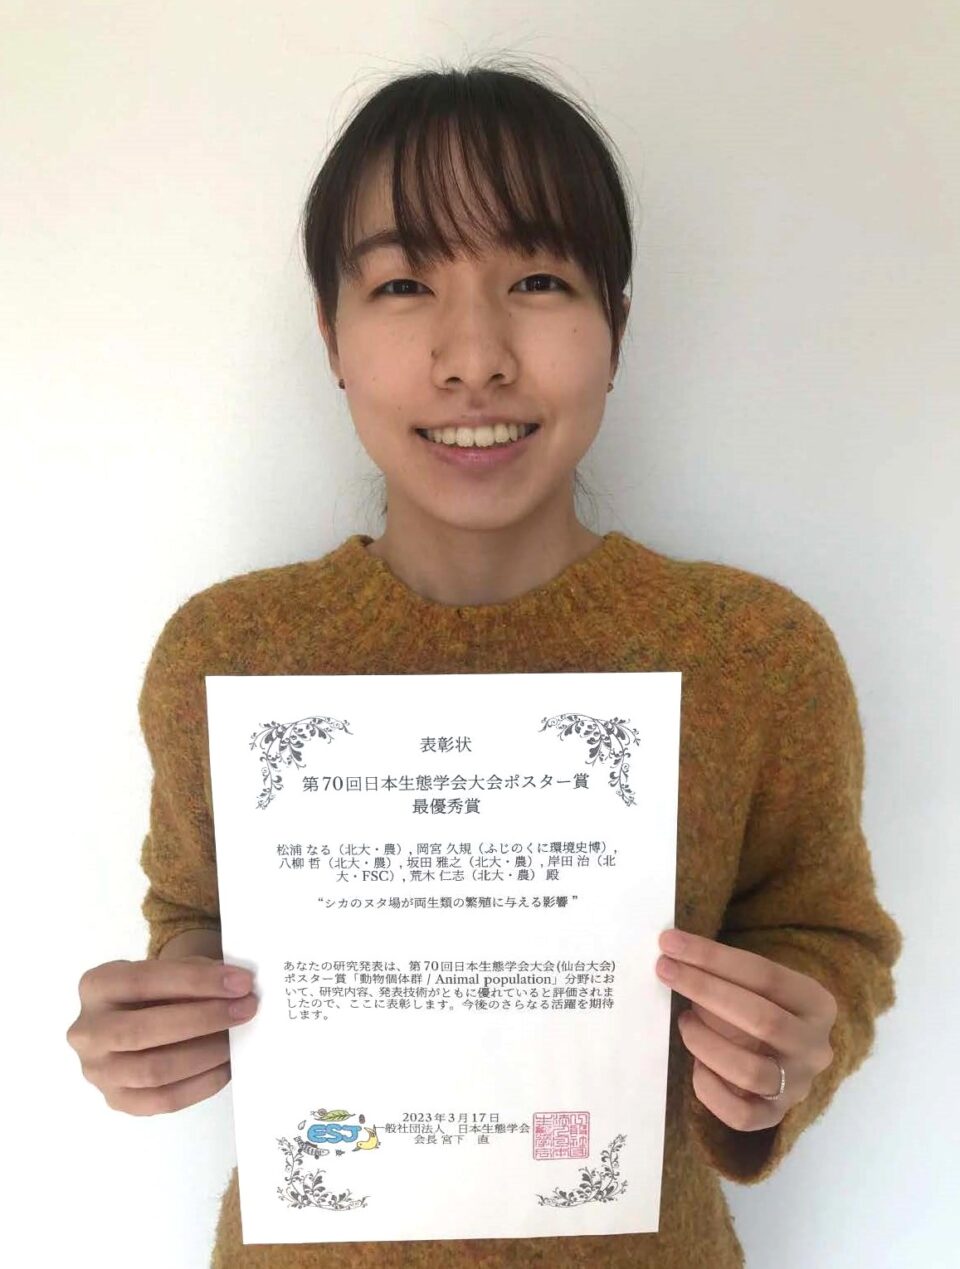 表彰状
第70回日本生態学会大会ポスター賞
最優秀賞
松浦 なる（北大・農）, 岡宮 久規（ふじのくに環境史博）,
八柳 哲（北大・農）, 坂田 雅之（北大・農）, 岸田 治（北
大・FSC）, 荒木 仁志（北大・農） 殿
“シカのヌタ場が両生類の繁殖に与える影響 ”
あなたの研究発表は、第70回日本生態学会大会(仙台大会)
ポスター賞「動物個体群 / Animal population」分野にお
いて、研究内容、発表技術がともに優れていると評価されま
したので、ここに表彰します。今後のさらなる活躍を期待
します。
2023年3月17日
一般社団法人　日本生態学会
会長 宮下　直
ESJ